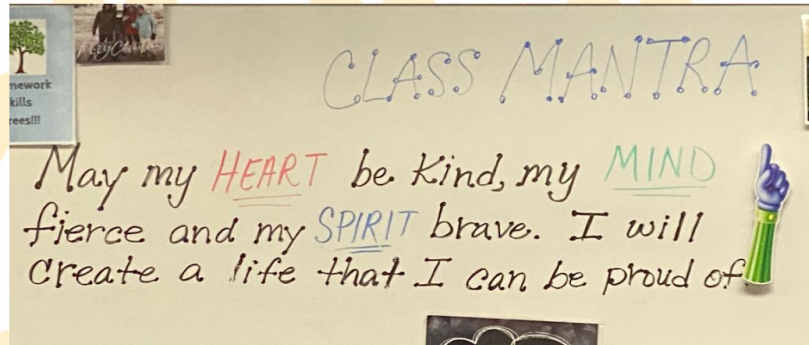 mework
kills
rees!!!
CLASS MANTRA
May my HEART be kind, my MIND
fierce and my SPIRIT brave. I will
create a life that I can be proud of.